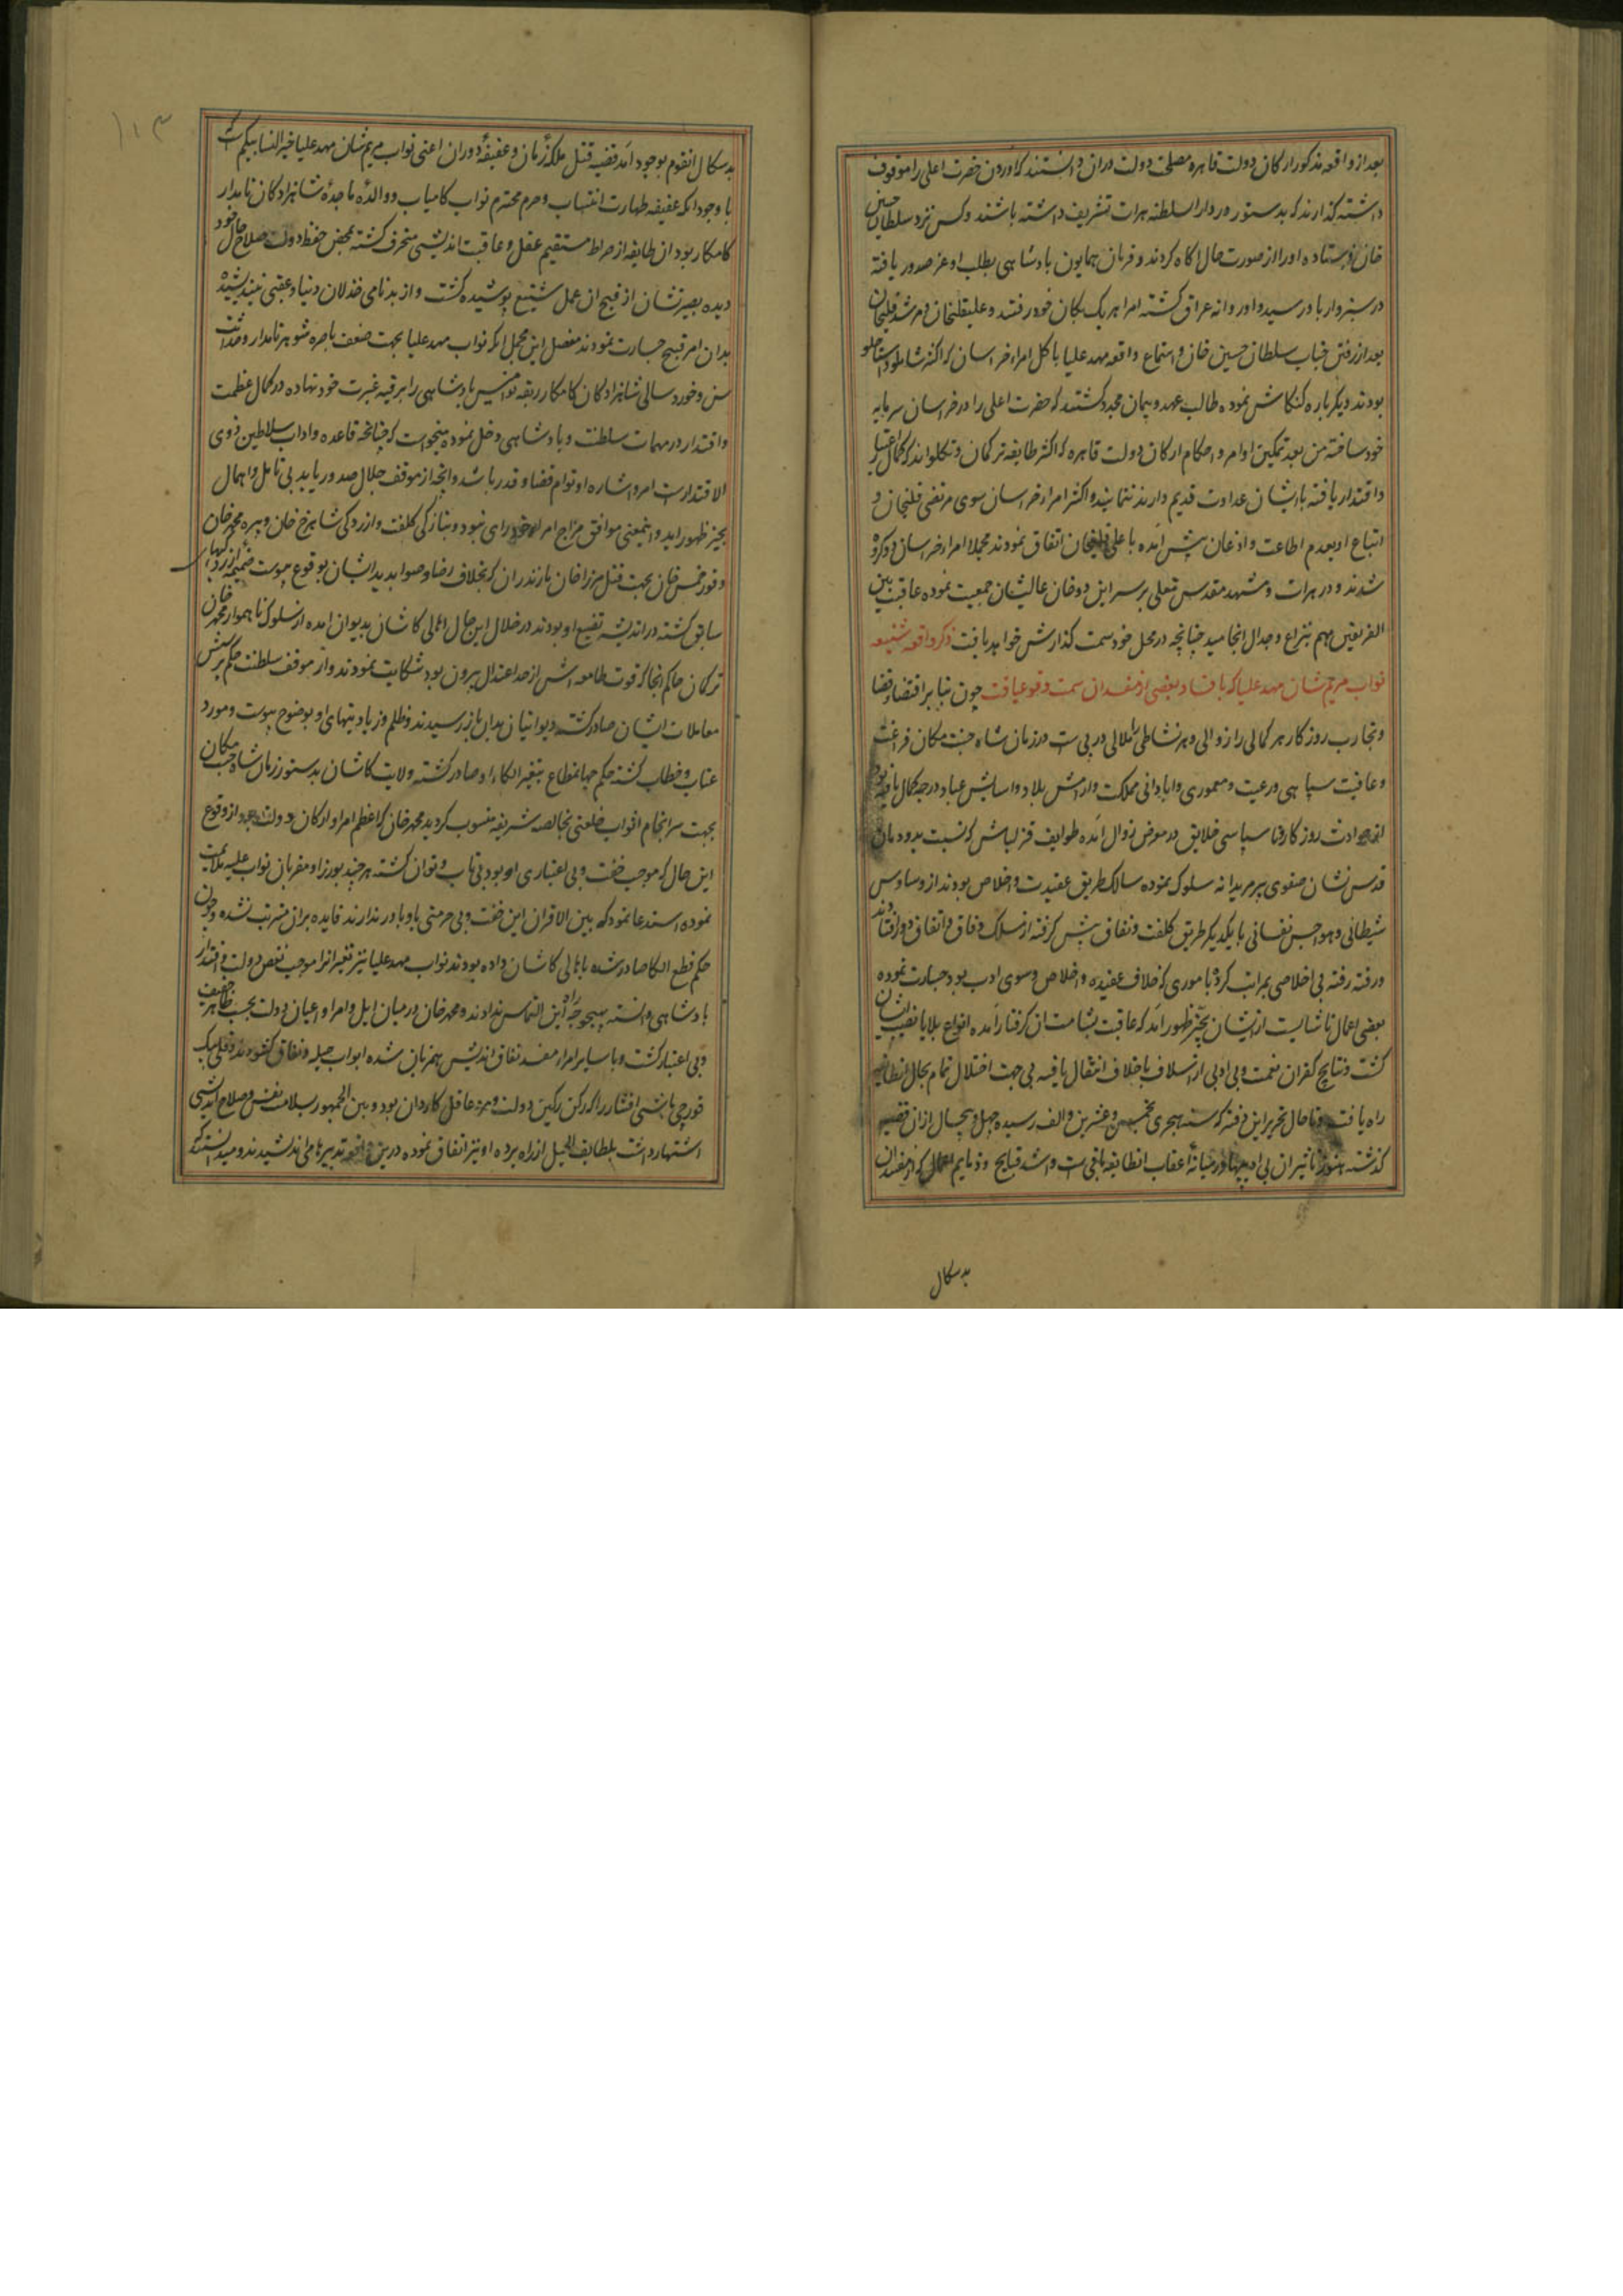 بعد از واقعه مذکور ارکان دولت قاهره مصلحت دولت در ان دانستند که اوردن حضرت اعلی را موقوف
داشته گذارند که بدستور در دار السلطنه هرات تشریف داشته باشند و کس نزد سلطان حسین
خان فرستاده او را از صورت حال اکاه کردند و فرمان همایون پادشاهی بطلب او عز صدور یافته
در سبزوار باو رسید و او روانه عراق کشته امرا هر یک بمکان خود رفتند و علیقلیخان و مرشد قلیخان
بعد از رفتن جناب سلطان حسین خان و استماع واقعه مهد علیا با کل امراء خراسان که اکثر شاملو و استاجلو
بودند دیکر باره کنکاش نموده طالب عهد و پیمان مجدد کشتند که حضرت اعلی را در خراسان سرمایه
خود ساخته من بعد تمکین اوامر و احکام ارکان دولت قاهره که اکثر طایفه ترکمان و تکلواند که کمال اعتبار
و اقتدار یافته با ایشان عداوت قدیم دارند ننمایند و اکثر امراء خراسان سوی مرتضی قلیخان و
اتباع او بعدم اطاعت و اذعان پیش آمده با علی قلیخان اتفاق نمودند مجملا امراء خراسان دو کروه
شدند و در هرات و مشهد مقدس معلی بر سر این دو خان عالیشان جمعیت نموده عاقبت بین
الفریقین مهم بنزاع و جدال انجامید چنانچه در محل خود سمت کذارش خواهد یافت ذکر واقعه شنیعه
نواب مریم شان مهد علیا که بافساد بعضی از مفسدان سمت وقوع یافت چون بنا بر اقتضاء قضا
و تجارب روزکار هر کمالی را زوالی و هر نشاطی را ملالی در پی است در زمان شاه جنت مکان فراغت
و عافیت سپاهی و رعیت و معموری و ابادانی مملکت و ارامش بلاد و اسایش عباد درجه کمال یافته بود
از حوادث روزکار و ناسپاسی خلایق در معرض زوال آمده طوایف قزلباش که نسبت بدودمان
قدس نشان صفوی پیر مریدانه سلوک نموده سالک طریق عقیدت و اخلاص بودند از وساوس
شیطانی و هواجس نفسانی با یکدیکر طریق کلفت و نفاق پیش کرفته از مسلک وفاق و اتفاق دور افتادند
و رفته رفته بی اخلاصی بمراتب کرده بامور که خلاف عقیده و اخلاص و سوی ادب بود جسارت نموده
بعضی اعمال ناشایست از ایشان بحیز ظهور آمد که عاقبت بشامت ان کرفتار آمده انواع بلایا نصیب ایشان
کشت و نتایج کفران نعمت و بی ادبی از اسلاف باخلاف انتقال یافته بی جهت اختلال تمام بحال انطایفه
راه یافت و تا حال تحریر این دفتر که سنه هجری بخمس و عشرین و الف رسیده چهل و پنجسال از ان قضیه
کذشته هنوز تاثیر ان بی ادبیها در میانه اعقاب انطایفه باقی است و اشد قبایح و ذمایم اعمال که از مفسدان
بدسکال
۱۱۳
بدسکال انقوم بوجود آمد قضیه قتل ملکه زمان و عفیفه دوران اعنی نواب مریم شان مهد علیا خیر النسا بیکم است
با وجود انکه عفیفه طهارت انتساب و حرم محترم نواب کامیاب و والده ماجده شاهزادکان نامدار
کامکار بود ان طایفه از صراط مستقیم عقل و عاقبت اندیشی منحرف کشته بمحض حفظ دولت و صلاح حال خود
دیده بصیرتشان از قبح ان عمل شنیع پوشیده کشت و از بدنامی و خذلان دنیا و عقبی نیندیشیده
بدان امر قبیح جسارت نمودند مفصل این مجمل انکه نواب مهد علیا بجهت ضعف باصره شوهر نامدار و حداثت
سن و خورد سالی شاهزادکان کامکار ربقه نوامیس پادشاهی را بر قبه غیرت خود نهاده در کمال عظمت
و اقتدار در مهمات سلطنت و پادشاهی دخل نموده میخواست که چنانچه قاعده و اداب سلاطین ذوی
الاقتدار است امر و اشاره او توام قضا و قدر باشد و انچه از موقف جلال صدور یابد بی تامل و اهمال
بحیز ظهور آید و اینمعنی موافق مزاج امراء خودرای نبود و بتازکی کلفت و ازردکی شاهرخ خان و پیره محمد خان
و قورخمس خان بجهت قتل میرزا خان مازندران که بخلاف رضا و صوابدید ایشان بوقوع پیوست ضمیمه ازردکیهای
سابق کشته در اندیشه تضییع او بودند در خلال این حال اهالی کاشان بدیوان آمده از سلوک ناهموار محمد خان
ترکمان حاکم انجا که قوت طامعه اش از حد اعتدال بیرون بود شکایت نمودند و از موقف سلطنت حکم پرسش
معاملات ایشان صادر کشته دیوانیان بدان باز رسیدند و ظلم و زیادتیهای او بوضوح پیوست و مورد
عتاب و خطاب کشته حکم جهانمطاع بتغیر الکاء او صادر کشته ولایت کاشان بدستور زمان شاه جنت مکان
بجهت سرانجام اثواب خلعتی بخالصه شریفه منسوب کردید محمد خان که اعظم امرا و ارکان دولت بود از وقوع
این حال که موجب خفت و بی اعتباری او بود بی تاب و توان کشته هر چند بوزرا و مقربان نواب علیه ملایمت
نموده استدعا نمود که بین الاقران این خفت و بی حرمتی باو باور ندارند فایده بران مترتب نشده و چون
حکم قطع الکا صادر شده باهالی کاشان داده بودند نواب مهد علیا نیز تغیر انرا موجب نقص دولت و اقتدار
پادشاهی دانسته بهیچوجه راه این التماس ندادند و محمد خان در میان ایل و امرا و اعیان دولت بحسب ظاهر خفیف
و بی اعتبار کشت و با سایر امراء مفسد نفاق اندیش همزبان شده ابواب حیله و نفاق کشودند و قلی بیک
قورچی باشی افشار را که رکن رکین دولت و مرد عاقل کاردان بود و بین الجمهور بسلامت نفس و صلاح اندیشی
اشتهار داشت بلطایف الحیل از راه برده او نیز اتفاق نموده درین تدبیرها می اندیشیدند و میدانستند که